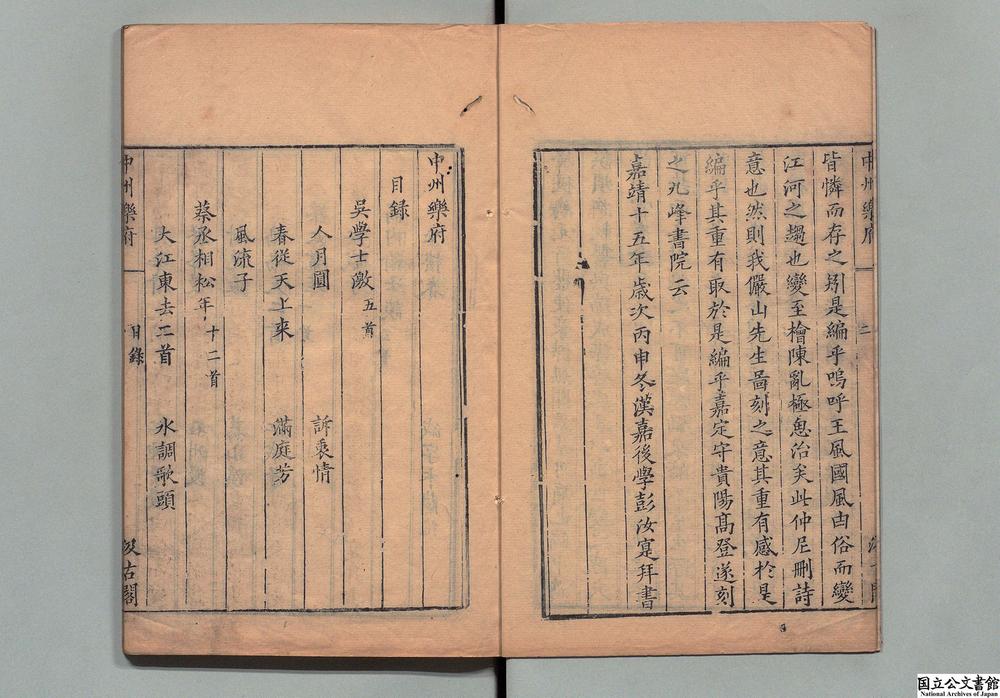 中州樂府 二
皆憐而存之矧是編乎嗚呼王風國風由俗而變
江河之趨也變至檜陳亂極思治矣此仲尼刪詩
意也然則我儼山先生啚刻之意其重有感於是
編乎其重有取於是編乎嘉定守貴陽髙登遂刻
之九峰書院云
嘉靖十五年歲次丙申冬漢嘉後學彭汝寔拜書
中州樂府
目録
吳學士激 五首
人月圓 訴衷情
春從天上来 滿庭芳
風流子
蔡丞相松年 十二首
大江東去二首 水調歌頭
中州樂府 目錄 汲古閣
国立公文書館
National Archives of Japan